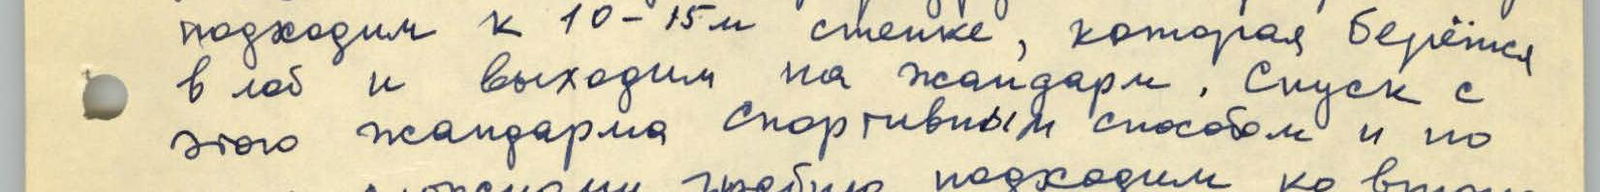 подходим к 10-15м стенке, которая берётся
в лоб и выходим на жандарм. Спуск с
этого жандарма спортивным способом и по
гребню подходим ко